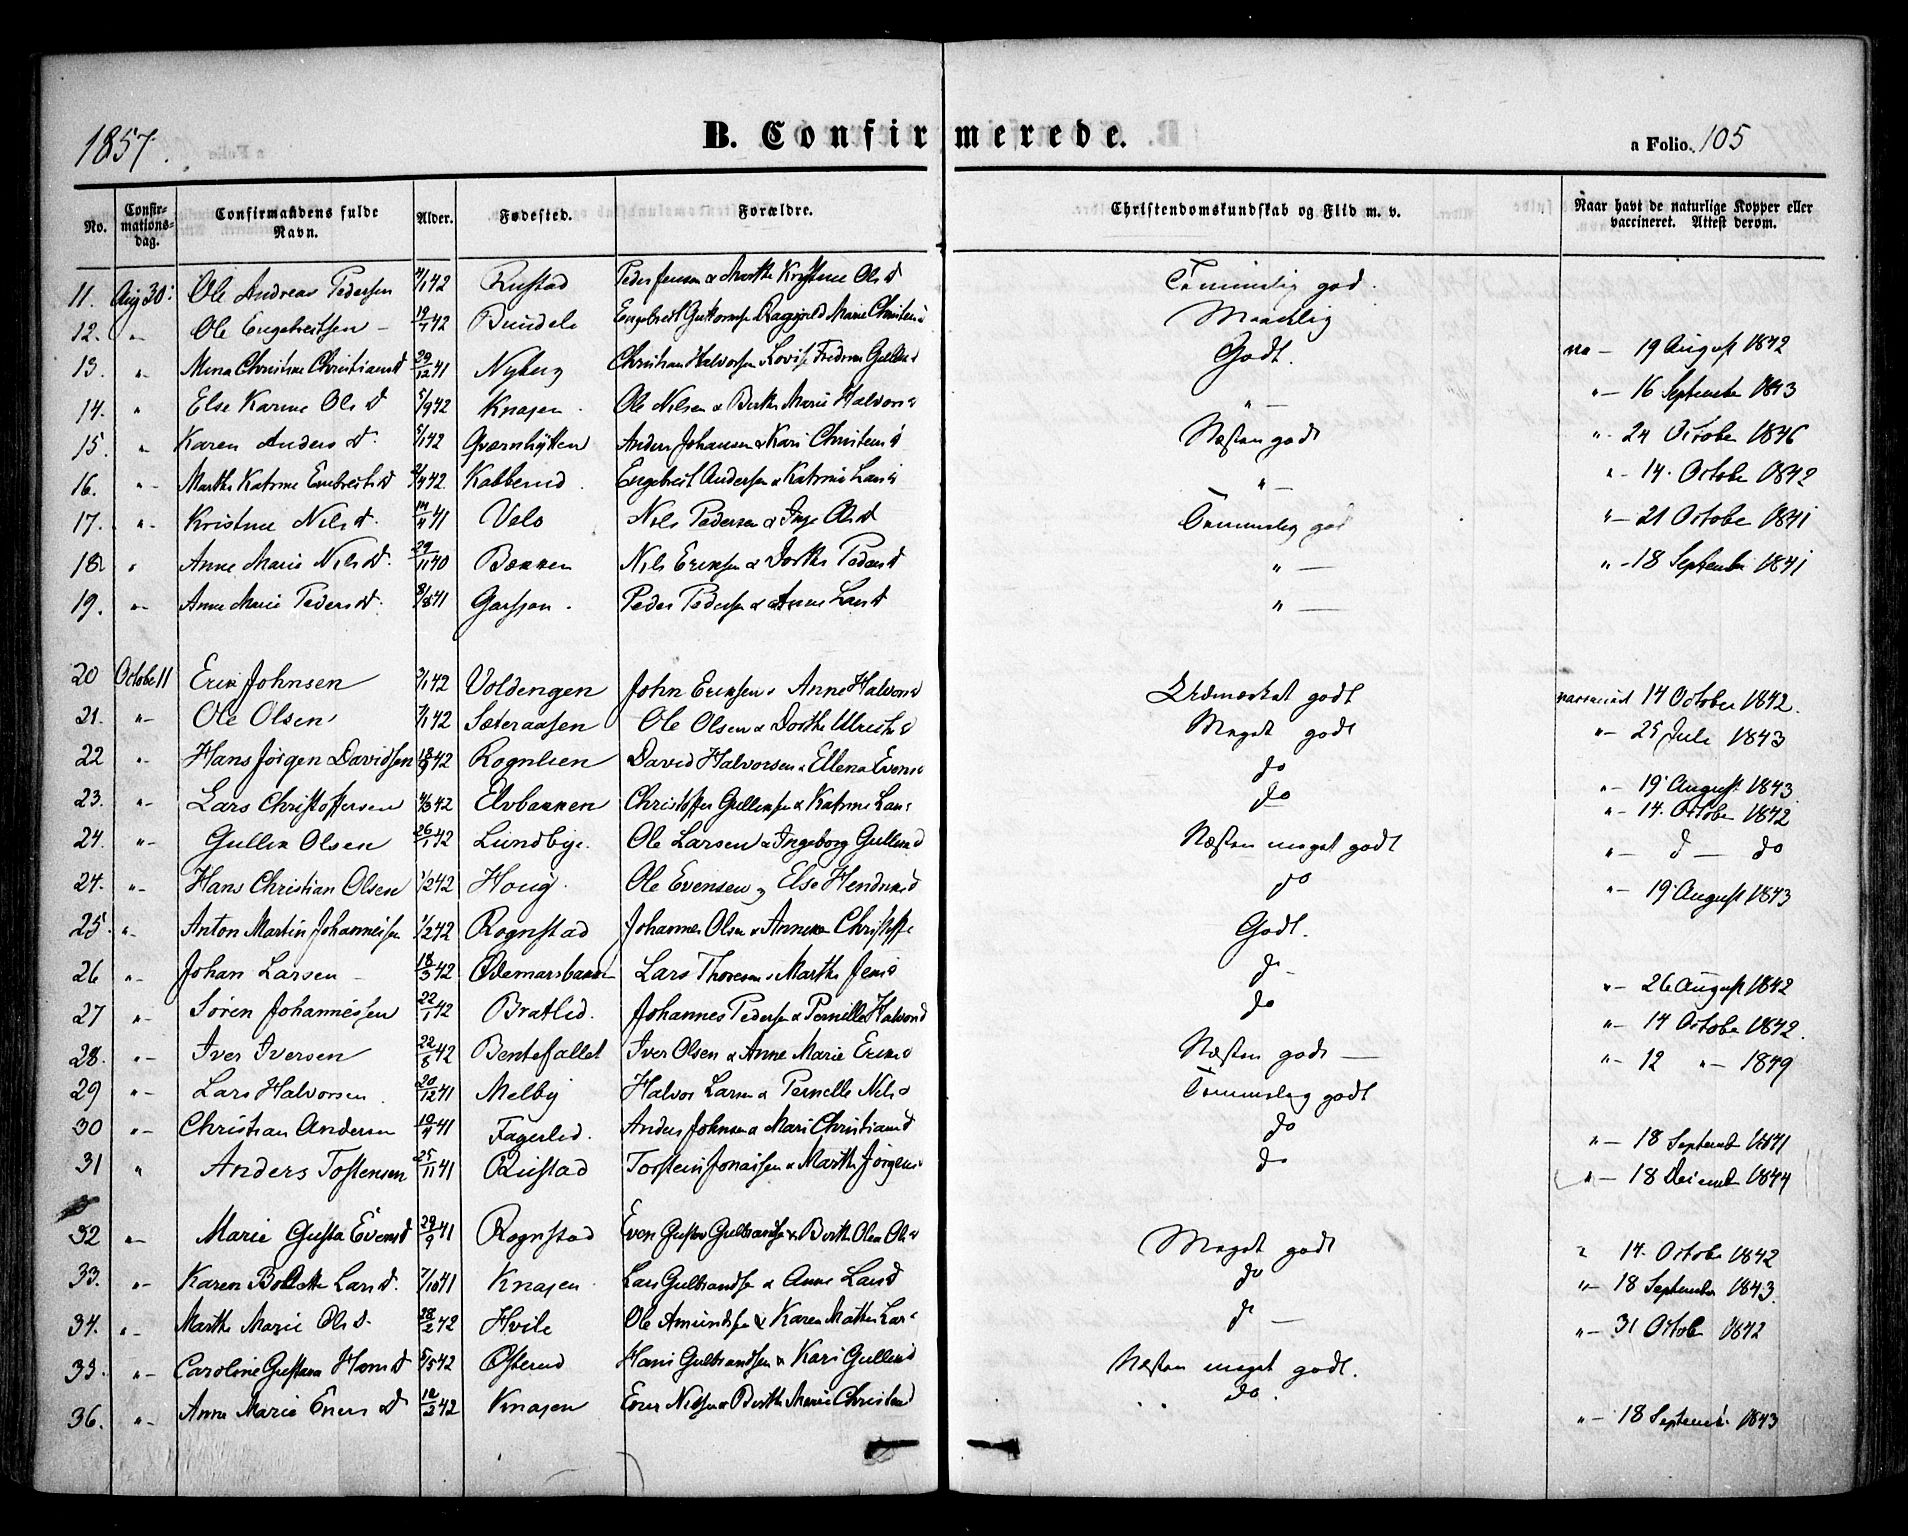 1857.
B. Confirmerede.
a Folio. 105
No. | Confirmationsdag. | Confirmandens fulde Navn. | Alder. | Fødested. | Forældre. | Christendomskundskab og Flid m. v. | Naar havt de naturlige Kopper eller vaccineret. Attest derom.
11. Aug 30: Ole Andreas Pedersen 4/1 42 Rustad Peder Jensen & Marthe Kristine Olsd Temmelig god.
12. „- Ole Engebretsen - 19/1 42 Bundeli Engebret Guttormse & Ragnild Marie Christensd Maadelig
13. „- Mina Christine Christiansd 29/12 41 Nyberg Christian Halvorsen & Lovise Fredrine Gulliksd Godt. va - 19 August 1842
14. „ Else Karine Olsd 5/9 42 Knajen. Ole Nilsen & Berthe Marie Halvorsd „- „- 16 September 1843
15. „ Karen Andersd. 5/1 42 Qværnhytten Anders Johansen & Kari Christensd Næsten godt „- 24 October 1846
16. „- Marthe Katrine Enebretsd 2/4 42 Kabberud. Engebret Andersen & Katrine Larsd „- „- 14. October 1842
17. „- Kristine Nilsd. 14/4 41 Velo Nils Pedersen & Inge Olsd Temmelig god „- 21 October 1841
18. „ Anne Marie Nilsd. 29/11 40 Bakken Nils Eriksen & Dorthe Pedersd „- „- 18 September 1841
19. „- Anne Marie Pedersd. 8/8 41 Garsjøen. Peder Pedersen & Anne Larsd „-
20 October 11 Erik Johnsen 3/1 42 Voldengen John Eriksen & Anne Halvorsd Udmærket godt vaccineret 14 October 1842.
21. „- Ole Olsen 7/1 42 Sæteraasen Ole Olsen & Dorthe Ulriksd Meget godt „- 25 Juli 1843
22 „- Hans Jörgen Davidsen 18/9 42 Rognlien David Halvorsen & Ellena Evensd do „- 19 August 1843
23. „- Lars Christoffersen 4/3 42 Elvbakken Christoffer Gulliksen & Katrine Larsd do „- 14. October 1842
24. „- Gullik Olsen 26/1 42 Lundbye. Ole Larsen & Ingeborg Gulliksd Næsten meget godt „- d - do
24. „- Hans Christian Olsen 1/2 42 Houg. Ole Evensen & Else Hendriksd do „- 19 August 1843
25. „- Anton Martin Johannessen 1/2 42 Rognstad Johannes Olsen & Anneken Christoffe Godt.
26 „- Johan Larsen - 18/3 42 Ødemarsbakken Lars Thoresen & Marthe Jensd do - „- 26 August 1842
27 „- Sören Johannessen 22/1 42 Bratlid. Johannes Pedersen & Pernille Halvorsd do „- 14 October 1842.
28. „- Iver Iversen 22/8 42 Bentefallet Iver Olsen & Anne Marie Eriksd Næsten godt - „- 12 „- 1849
29 „- Lars Halvorsen. 20/12 41 Melby Halvor Larsen & Pernelle Nilsd Temmelig godt
30 „- Christian Andersen 10/4 41 Fagerlid. Anders Johnsen & Mari Christiansd do „- 18 September 1841
31 „ Anders Tostensen 25/11 41 Rustad Torstein Jonassen & Marthe Jörgensd do „- 18 December 1844
32 „- Marie Gusta Evensd 29/9 41 Rognstad Even Gustav Gulbrandse & Berthe Olea Olsd Meget godt 14. October 1842
33. „- Karen Bolette Larsd. 7/10 41 Knajen. Lars Gulbrandse & Anne Larsd do „- 18 September 1843.
34. „- Marthe Marie Olsd. 28/2 42 Hvile Ole Amundsen & Karen Mathea Lars d - „- 31 October 1842
35. „- Caroline Gustava Hansd 5/5 42 Østerud Hans Gulbrandsen & Kari Gulliksd Næsten meget godt.
36. „- Anne Marie Enersd 12/2 42 Knajen Ener Nilsen & Berthe Marie Christensd do. „- 18 September 1843